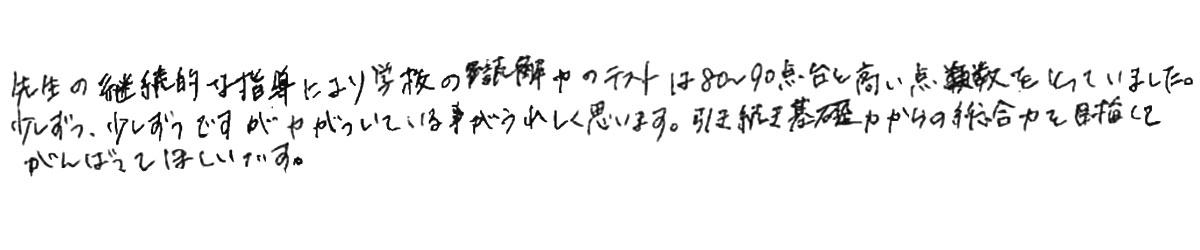 先生の継続的な指導により学校の読解力のテストは80~90点台と高い点数をとっていました。
少しずつ、少しずつですが力がついている事がうれしく思います。引き続き基礎力からの総合力を目指して
がんばってほしいです。